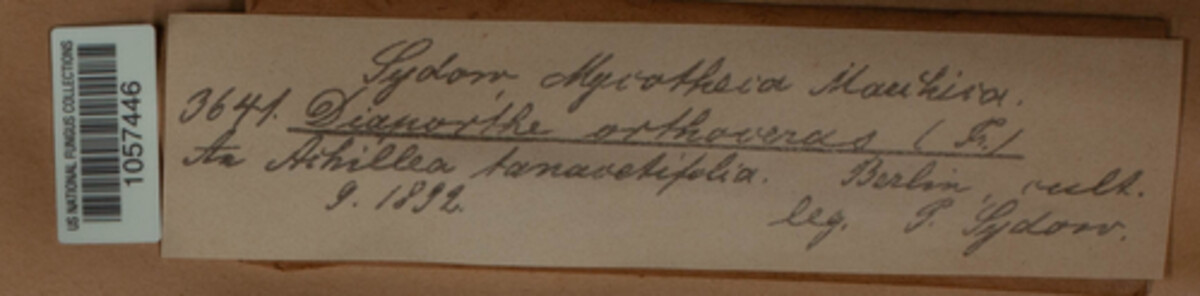 US NATIONAL FUNGUS COLLECTIONS
1057446
Sydow, Mycotheca Marchica.
3641. Diaporthe orthoceras (Fr.)
An Achillea tanacetifolia. Berlin, cult.
9. 1892. leg. P. Sydow.